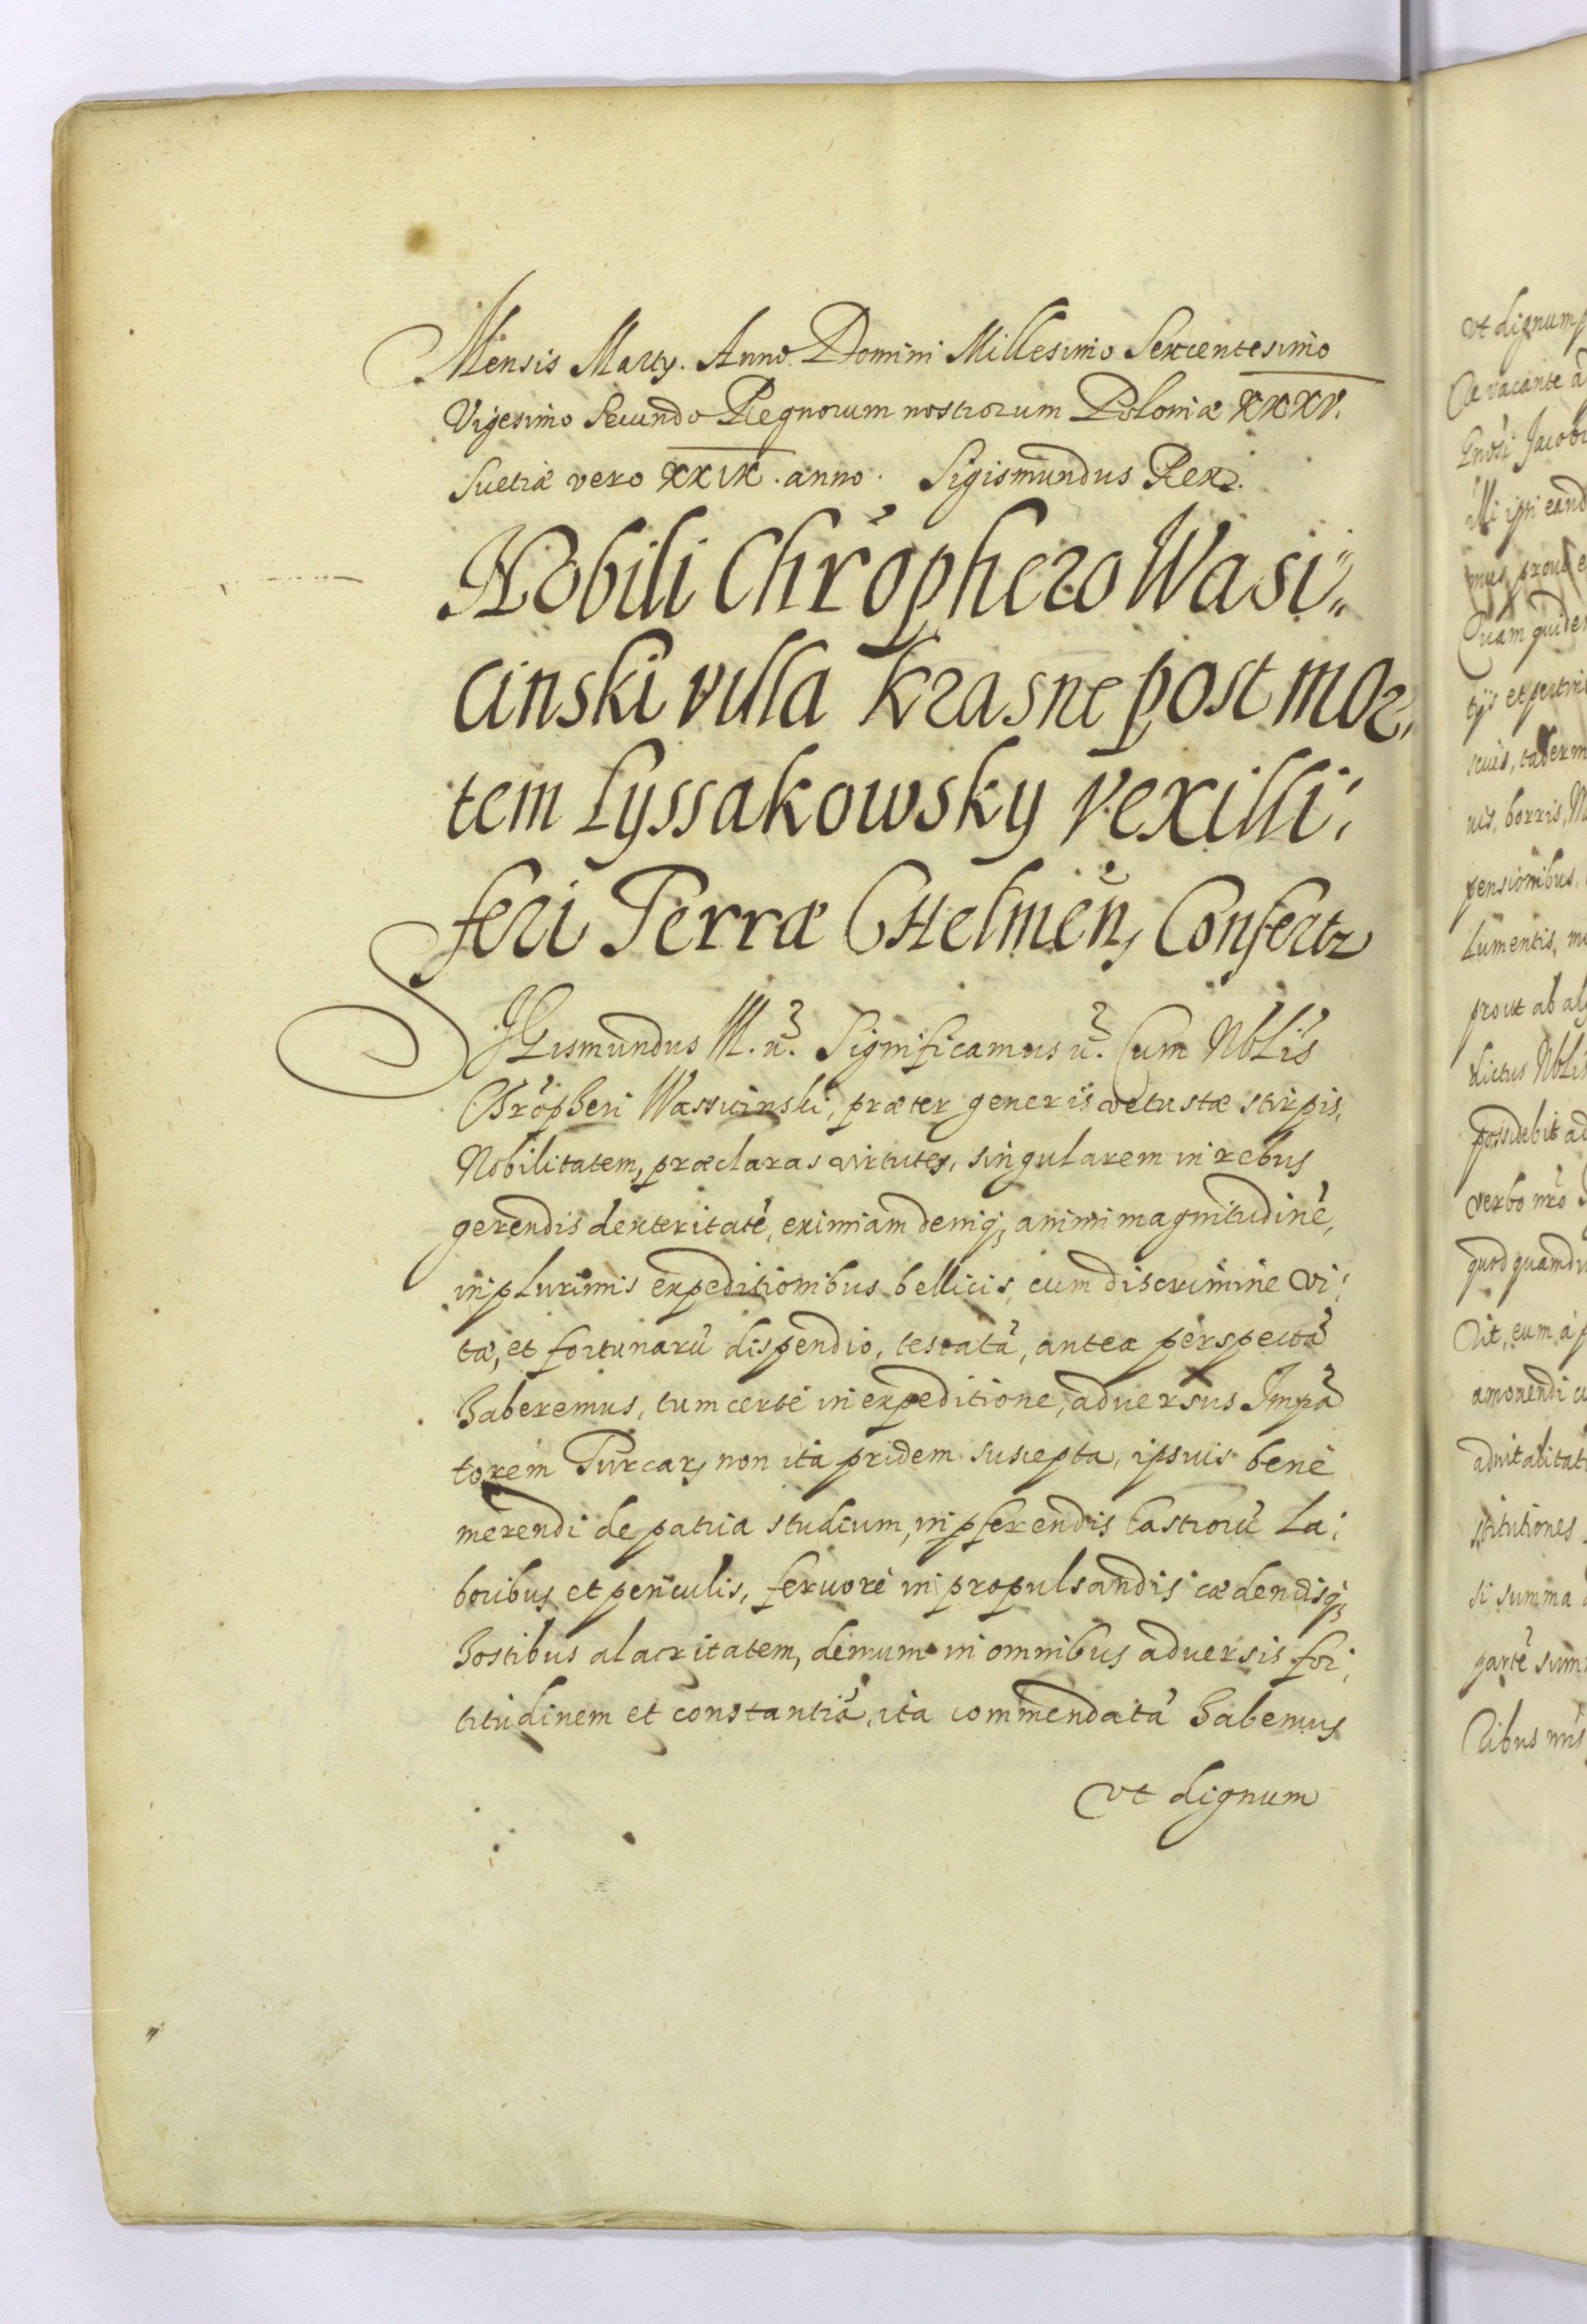 Mensis Martÿ. Anno Domini Millesimo Sexcentesimo
Vigesimo Secundo Regnorum nostrorum Poloniæ XXXV.
Suetiæ vero XXIX. anno. Sigismundus Rex.
Nobili Chrõphero Wasi„
cinski villa Krasne post mor„
tem Lyssakowsky Vexilli„
feri Terræ Chelmeñ, Confertr
SIGismundus III. &c. Significamus &c. Cum Nblis
Chrõpheri Wassicinski, præter generis vetustæ stirpis,
Nobilitatem, præclaras virtutes, singularem in rebus
gerendis dexteritatẽ, eximiam deniq3 animi magnitudinẽ,
in plurimis expeditionibus bellicis, cum discrimine vi„
tæ, et fortunarũ dispendio, testatã, antea perspectã
haberemus, tum certè in expeditione, aduersus Impã
torem Turcar, non ita pridem suscepta, ipsius benè
merendi de patria studium, in pferendis Castrorũ La„
boribus et periculis, feruorẽ in propulsandis cædendisq3
hostibus alacritatem, demum in omnibus aduersis for„
titudinem et constantiã, ita commendatã habemus
vt dignum
vt dignum
vacante
Jacob
illi ipsi eand
mus, prout e
Quam quidem
tijs et pertin
nis, borris, M
pensionibus,
Lumentis, m
prout ab al
dictus Nblis
possidebit ad
verbo nr̃o
quod quamdiu
Vit, eum, à p
amouendi
aduitalitat
stitutiones
si summa
partẽ sum